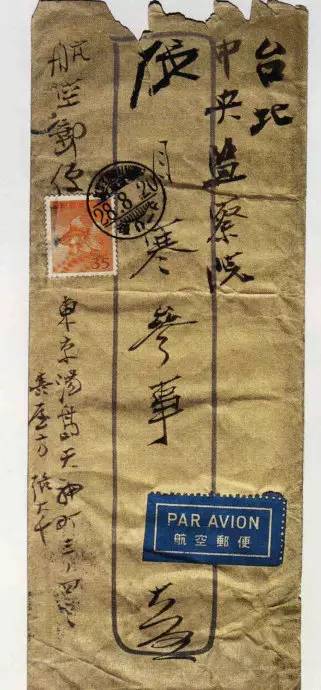 台北
中央监察院
張目寒參事
航空郵便
東京湯島天神町三ノ四
方 張大千
28.8.20
35
PAR AVION
航空郵便